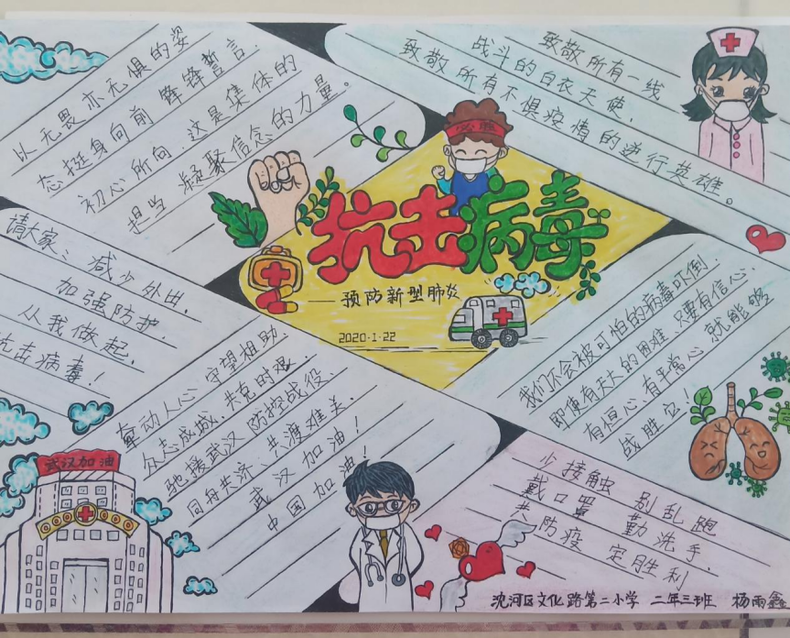 以无畏亦无惧的姿
态挺身向前 锋锋誓言.
初心所向.这是集体的
担当 凝聚信念的力量。
致敬所有一线
战斗的白衣天使.
致敬所有不惧疫情的逆行英雄。
必胜
抗击病毒
——预防新型肺炎
2020·1·22
请大家、减少外出.
加强防护.
从我做起.
抗击病毒！
牵动人心 守望相助.
众志成城.共克时艰.
驰援武汉 防控战役.
同舟共济、共渡难关.
武汉加油！
中国加油！
我们不会被可怕的病毒吓倒.
即使有天大的困难 只要有信心.
有恒心 有平常心 就能够
战胜它！
武汉加油
少接触 别乱跑
戴口罩 勤洗手.
共防疫 定胜利
沈河区文化路第二小学 二年三班 杨雨鑫